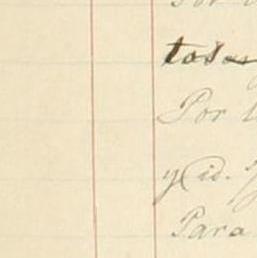 Por
tos
Por
y id.
Para